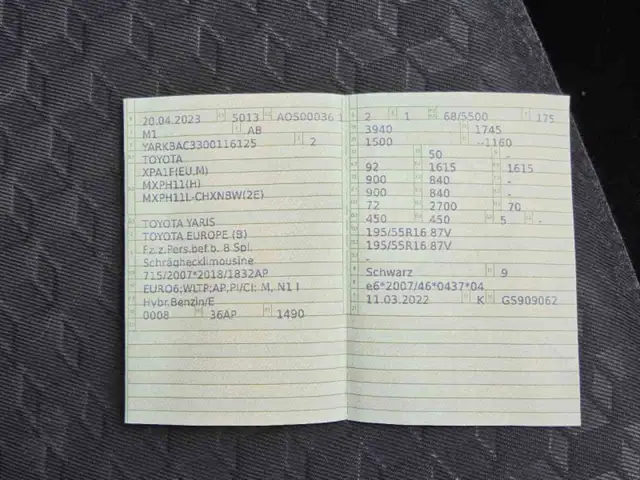 20.04.2023 5013 AOS00036 1
M1 AB
YARKBAC3300116125 2
TOYOTA
XPA1F(EU,M)
MXPH11(H)
MXPH11L-CHXNBW(2E)
TOYOTA YARIS
TOYOTA EUROPE (B)
Fz.z.Pers.bef.b. 8 Spl.
Schräghecklimousine
715/2007*2018/1832AP
EURO6;WLTP;AP,PI/CI; M, N1 I
Hybr.Benzin/E
0008 36AP 1490
2 1 68/5500 175
3940 1745
1500 --1160
50 -
92 1615 1615
900 840 -
900 840 -
72 2700 70
450 450 5 -
195/55R16 87V
195/55R16 87V
-
Schwarz 9
e6*2007/46*0437*04
11.03.2022 K G5909062